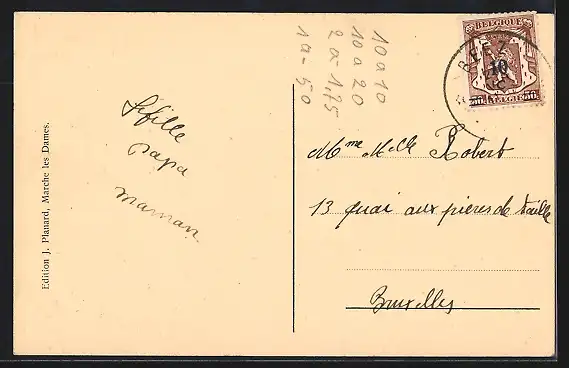 10 a 10
10 a 20
2 a - 1.75
1 a - 50
BELGIQUE
BEEZ
10
BELGIE
papa
maman
Mme Melle Robert
13 quai aux pierres de taille
Bruxelles
Edition J. Planard, Marche les Dames.